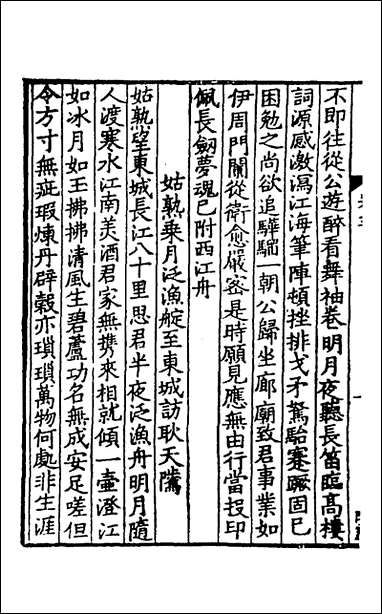 不即往從公遊醉看舞袖卷明月夜聽長笛臨高樓
詞源感激瀉江海筆陣頓挫排戈矛駑駘蹇蹶固已
困勉之尚欲追驊騮一朝公歸坐廊廟致君事業如
伊周門闌從衛愈嚴密是時願見應無由行當投印
佩長劒夢魂已附西江舟
姑熟乘月泛漁艇至東城訪耿天隲
姑熟望東城長江八十里思君半夜泛漁舟明月隨
人渡寒水江南美酒君家無携來相就傾一壷澄江
如冰月如玉拂拂清風生碧蘆功名無成安足嗟但
令方寸無疵瑕煉丹辟穀亦瑣瑣萬物何處非生涯